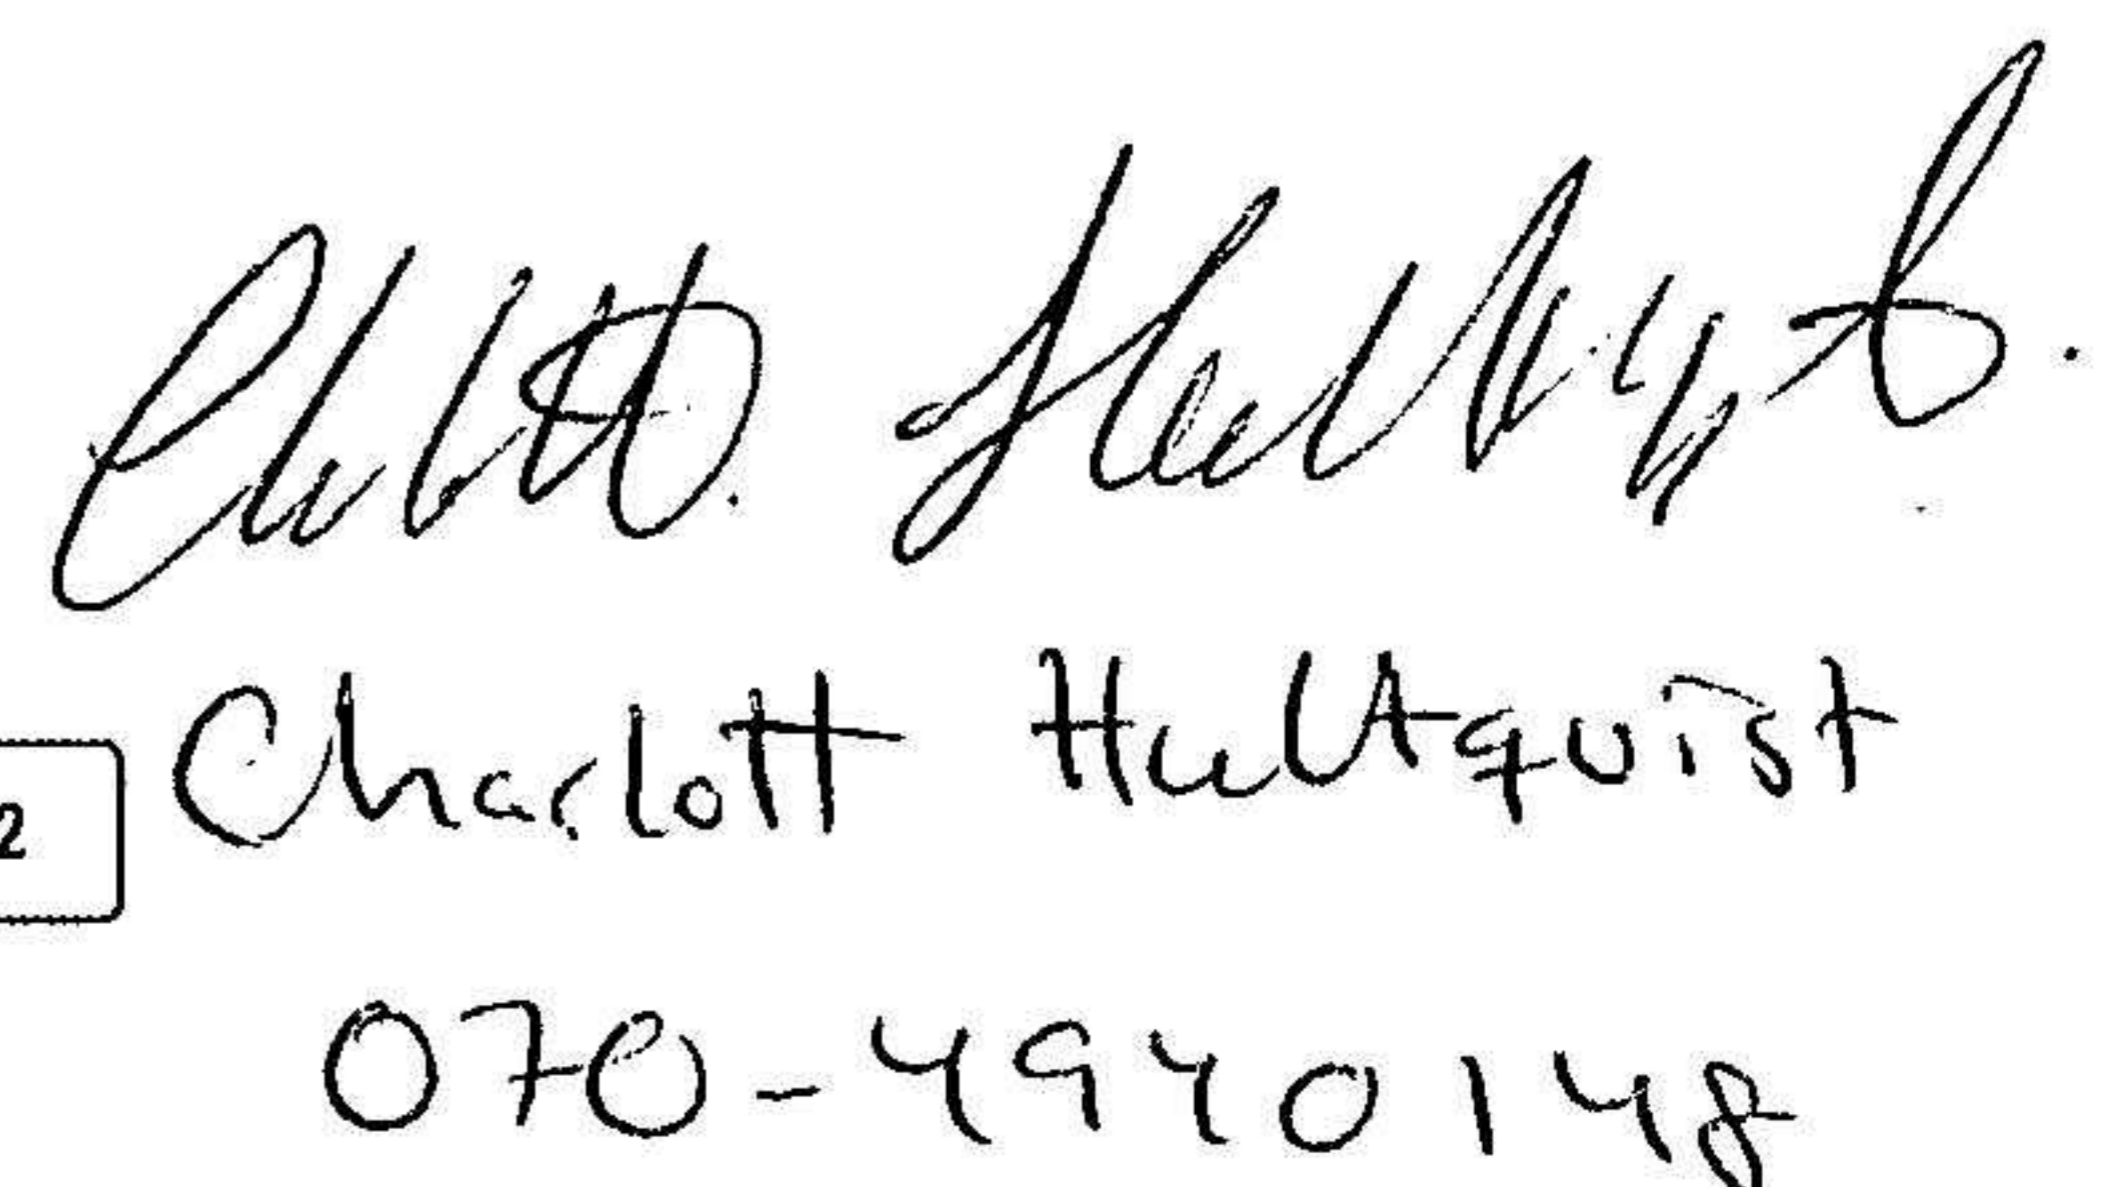 Charlott Hultqvist
Charlott Hultqvist
2
070-4940148